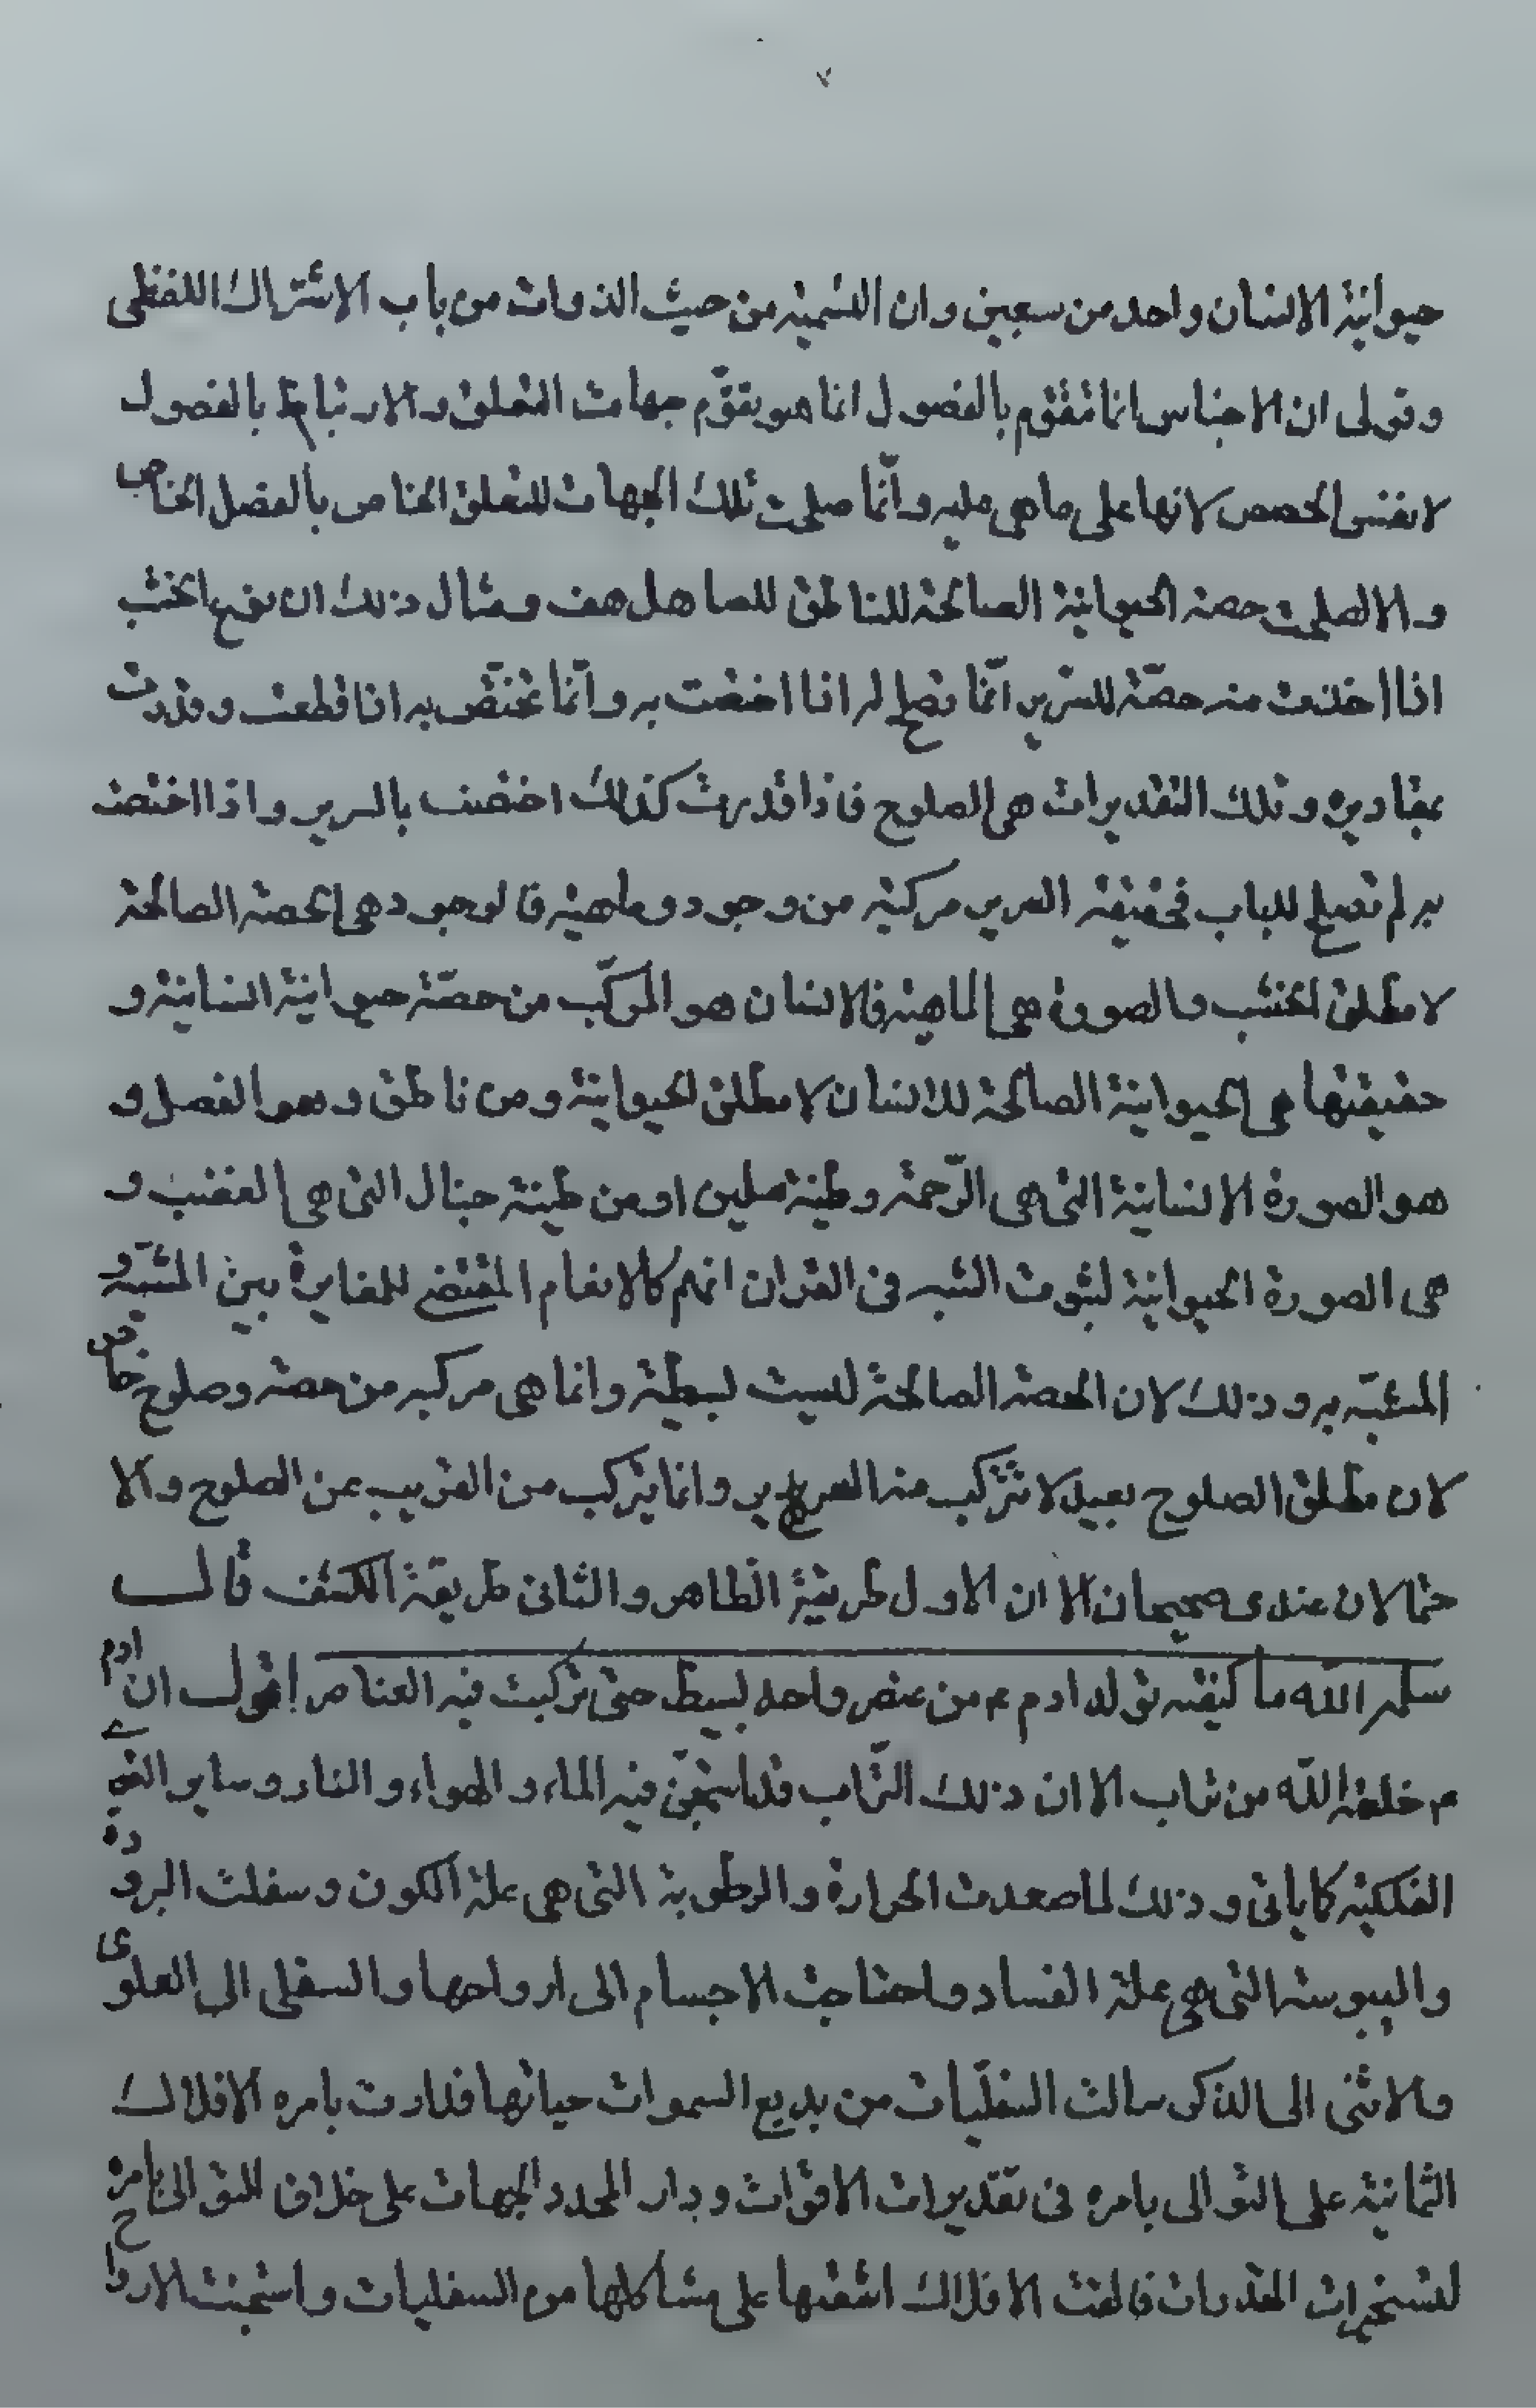 ٧
حيوانية الانسان واحد من سبعين وان التسمية من حيث الذوات من باب الاشتراك اللفظى
وقولى ان الاجناس انما تتقوم بالفصول انما هو بقوّم جهات التعلق والارتباط بالفصول
لا بنفس الحصص لانها على ما هى عليه وانّما صلحت تلك الجهات للتعلق الخاص بالفصل الخاص
والا لصلحت حصة الحيوانية الصالحة للناطق للصاهل هف ومثال ذلك ان نوع الخشب
اذا اخذت منه حصّة للسرير انّما تصلح له اذا اختصت به وانّما تختصّ به اذا قطعت وقدرت
بمقاديره وتلك التقديرات هى الصلوح فاذا قدرت كذلك اختصت بالسرير واذا اختصت
به لم تصلح للباب فحقيقة السرير مركبة من وجود وماهية فالوجود هى الحصة الصالحة
لا مطلق الخشب والصورة هى الماهية فالانسان هو المركّب من حصّة حيوانية انسانية و
حقيقتها هى الحيوانية الصالحة للانسان لا مطلق الحيوانية ومن ناطق وهو الفصل و
هو الصورة الانسانية التى هى الرّحمة وطينة عليين او من طينة خبال التى هى الغضب و
هى الصورة الحيوانية لثبوت التشبه فى القران انهم كالانعام المقتضى للمغايرة بين المشبّه و
المشبّه به وذلك لان الحصة الصالحة ليست بسيطة وانما هى مركبه من حصة وصلوح خاص
لان مطلق الصلوح بعيد لا تتركب منه السرير وانما يتركب من القريب عن الصلوح والا
حتمالان عندى صحيحان الا ان الاول طريقة الظاهر والثانى طريقة الكشف قال
سلمه الله ما كيفية تولد ادم ع من عنصر واحد بسيط حتى تركبت فيه العناصر اقول ان ادم
ع خلقه الله من تراب الا ان ذلك التّراب قد استجنّ فيه الماء والهواء والنار وساير القوى
الفلكية كما ياتى وذلك لما صعدت الحرارة والرطوبة التى هى علة الكون وسفلت البرودة
واليبوسة التى هى علة الفساد واحتاجت الاجسام الى ارواحها والسفلى الى العلوى
والانثى الى الذكر سالت السفليّات من بديع السموات حياتها فدارت بامره الافلاك
الثمانية على التوالى بامره فى تقديرات الاقوات ودار المحدد الجهات على خلاف التوالى بامره
لتسخيرات المقدرات فالقت الافلاك اشعتها على مشاكلها من السفليات واستجنت الارواح